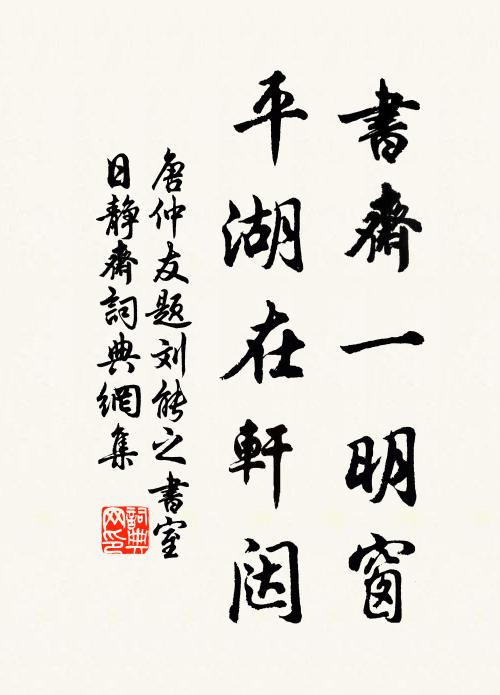 書齋一明窗
平湖在軒闼
唐仲友題刘能之書室
日靜齋詞典網集
詞典网印